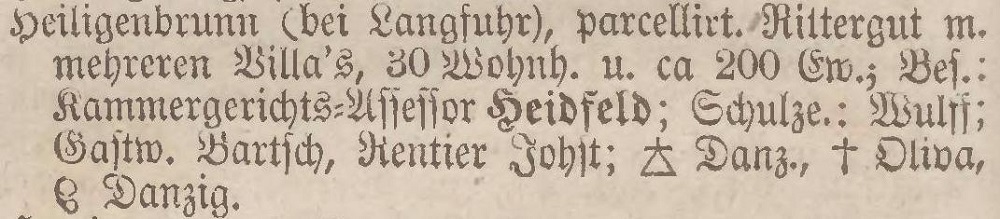 Heiligenbrunn (bei Langfuhr), parcellirt. Rittergut m.
mehreren Villa's, 30 Wohnh. u. ca 200 Ew.; Bes.:
Kammergerichts-Assessor Heidfeld; Schulze.: Wulff;
Gastw. Bartsch, Rentier Johst; Danz., † Oliva,
Danzig.